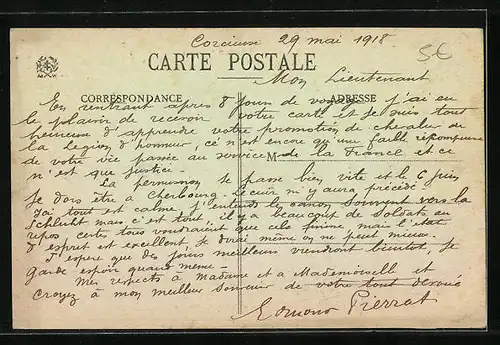 Corcieux 29 mai 1918
5€
CARTE POSTALE
M.W.
Mon Lieutenant
CORRESPONDANCE
ADRESSE
En rentrant après 8 jours de voyage j'ai eu
le plaisir de recevoir votre carte et je suis tout
heureuse d'apprendre votre promotion de chevalier de
la Légion d'honneur, ce n'est encore qu'une faible récompense
de votre vie passée au service de la France et ce
M
n'est que justice.
La permission se passe bien vite et le 6 juin
je dois être à Cherbourg. Lecuir m'y aura précédé.
Ici tout est calme j'entends le canon souvent vers la
Schlucht mais c'est tout, il y a beaucoup de soldats au
repos certes tous voudraient que cela finisse, mais l'état
d'esprit est excellent, je dirai même on ne peut mieux.
J'espère que des jours meilleurs viendront bientôt, je
garde espoir quand même.
Mes respects à Madame et a Mademoiselle et
croyez à mon meilleur souvenir de votre tout dévoué
Edmond Pierrat